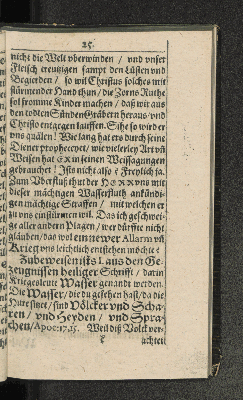 25.
nicht die Welt überwinden / und unser
Fleisch creutzigen sampt den Lüsten und
Begierden / so wil Christus solches mit
stürmender Hand thun / die Zorns Ruthe
sol fromme Kinder machen / daß wir aus
den todten Sünden Gräbern heraus und
Christo entgegen lauffen. Sihe so wird er
uns quälen! Wie lang hat ers durch seine
Diener prophecyet / wie vielerley Art uñ
Weisen hat Er in seinen Weissagungen
gebrauchet! Ists nicht also? Freylich ja.
Zum Überfluß thut der HERR uns mit
dieser mächtigen Wasserfluth ankündi-
gen mächtige Straffen / mit welchen er
uns einstürmen wil. Das ich geschwei-
ge aller andern Plagen / wer dürffte nicht
gläuben / das wol ein newer Allarm uñ
Krieg uns leichtlich entstehen möchte!
Zubeweisen ists 1. aus den Ge-
zeugnissen heiliger Schrifft / darin
Kriegesleute Wasser genandt werden.
Die Wasser / die du gesehen hast / da die
Hure sitzet / sind Völcker und Scha-
ren / und Heyden / und Spra-
chen / Apoc: 17, 15. Weil diß Volck ver-
achtet